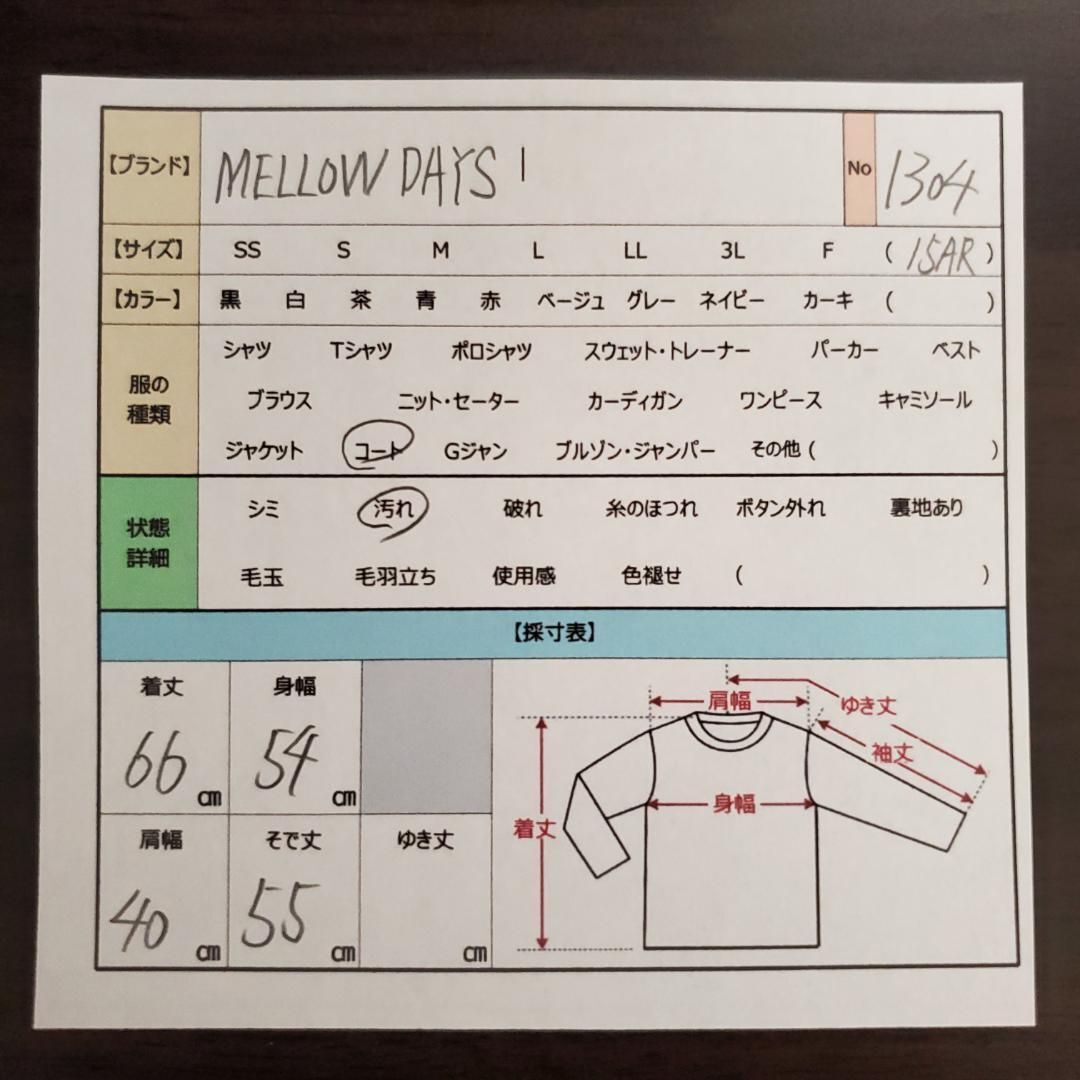 【ブランド】 MELLOW DAYS No 1304
【サイズ】 SS S M L LL 3L F ( 15AR )
【カラー】 黒 白 茶 青 赤 ベージュ グレー ネイビー カーキ ( )
服の種類
シャツ Tシャツ ポロシャツ スウェット・トレーナー パーカー ベスト
ブラウス ニット・セーター カーディガン ワンピース キャミソール
ジャケット コート Gジャン ブルゾン・ジャンパー その他 ( )
状態詳細
シミ 汚れ 破れ 糸のほつれ ボタン外れ 裏地あり
毛玉 毛羽立ち 使用感 色褪せ ( )
【採寸表】
着丈 身幅
66 cm 54 cm
肩幅 そで丈 ゆき丈
40 cm 55 cm cm
肩幅
ゆき丈
袖丈
身幅
着丈